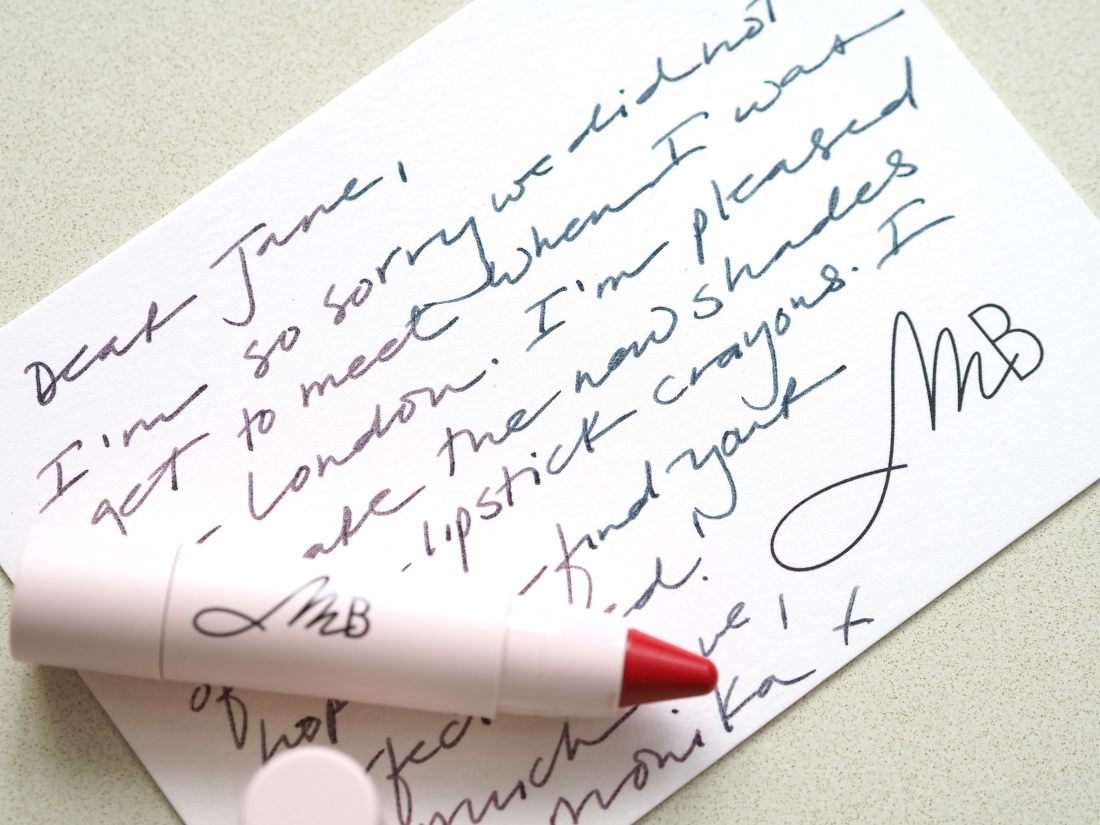 Dear Jane,
I'm so sorry we did not
get to meet when I was
London. I'm pleased
are the new shades
of lipstick crayons. I
hop find your
fec d.
much ve,
Monika x
MB
MB